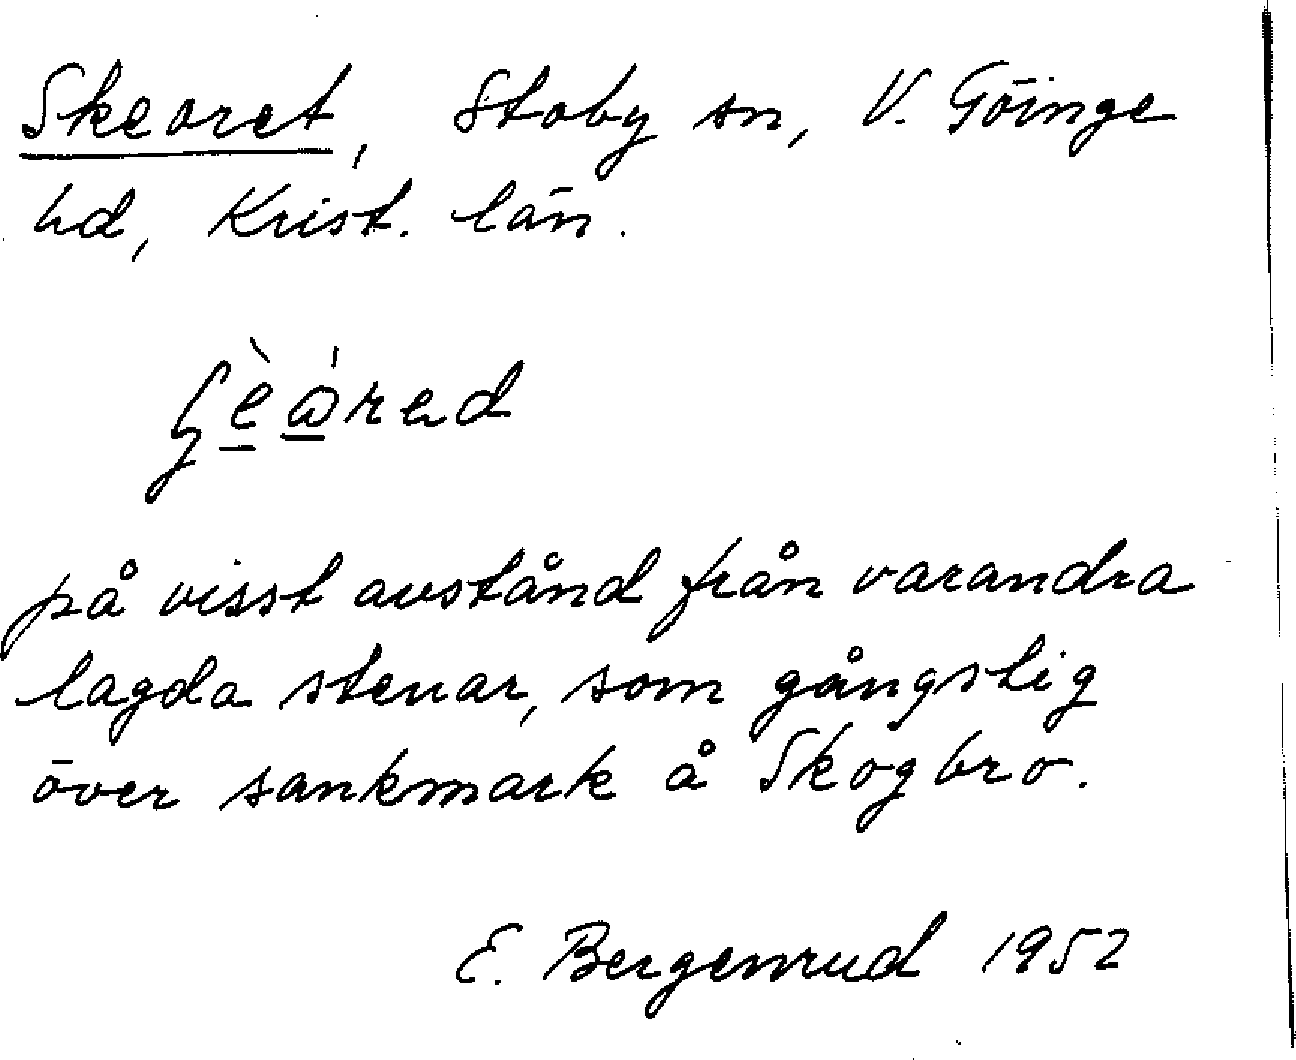 Skeoret, Stoby sn, V. Göinge
hd, Krist. län.
på visst avstånd från varandra
lagda stenar, som gångstig
över sankmark å Skogbro.
E. Bergenrud 1952